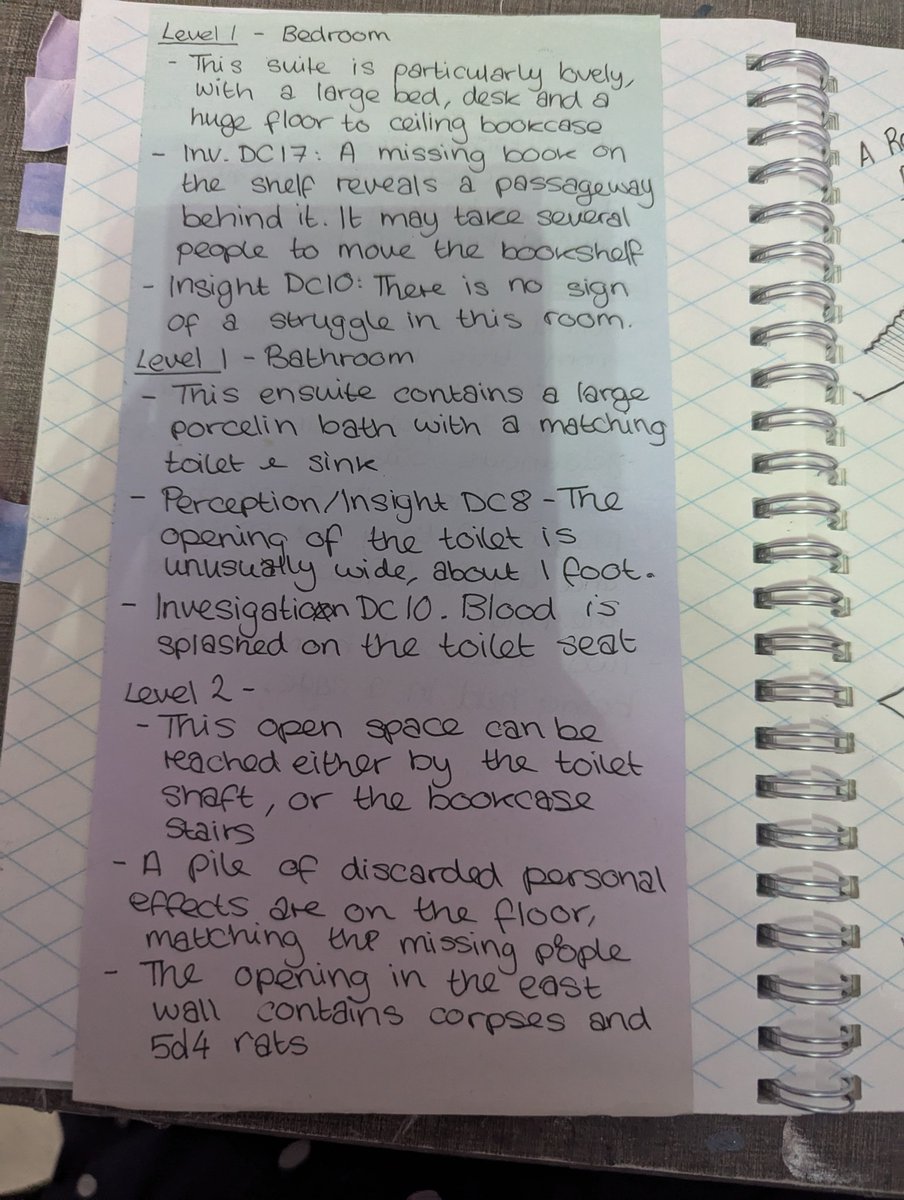 Level 1 - Bedroom
- This suite is particularly lovely,
with a large bed, desk and a
huge floor to ceiling bookcase
- Inv. DC17: A missing book on
the shelf reveals a passageway
behind it. It may take several
people to move the bookshelf
- Insight DC10: There is no sign
of a struggle in this room.
Level 1 - Bathroom
- This ensuite contains a large
porcelin bath with a matching
toilet & sink
- Perception/Insight DC8 - The
opening of the toilet is
unusually wide, about 1 foot.
- Invesigation DC10. Blood is
splashed on the toilet seat
Level 2 -
- This open space can be
reached either by the toilet
shaft, or the bookcase
stairs
- A pile of discarded personal
effects are on the floor,
matching the missing people
- The opening in the east
wall contains corpses and
5d4 rats
A